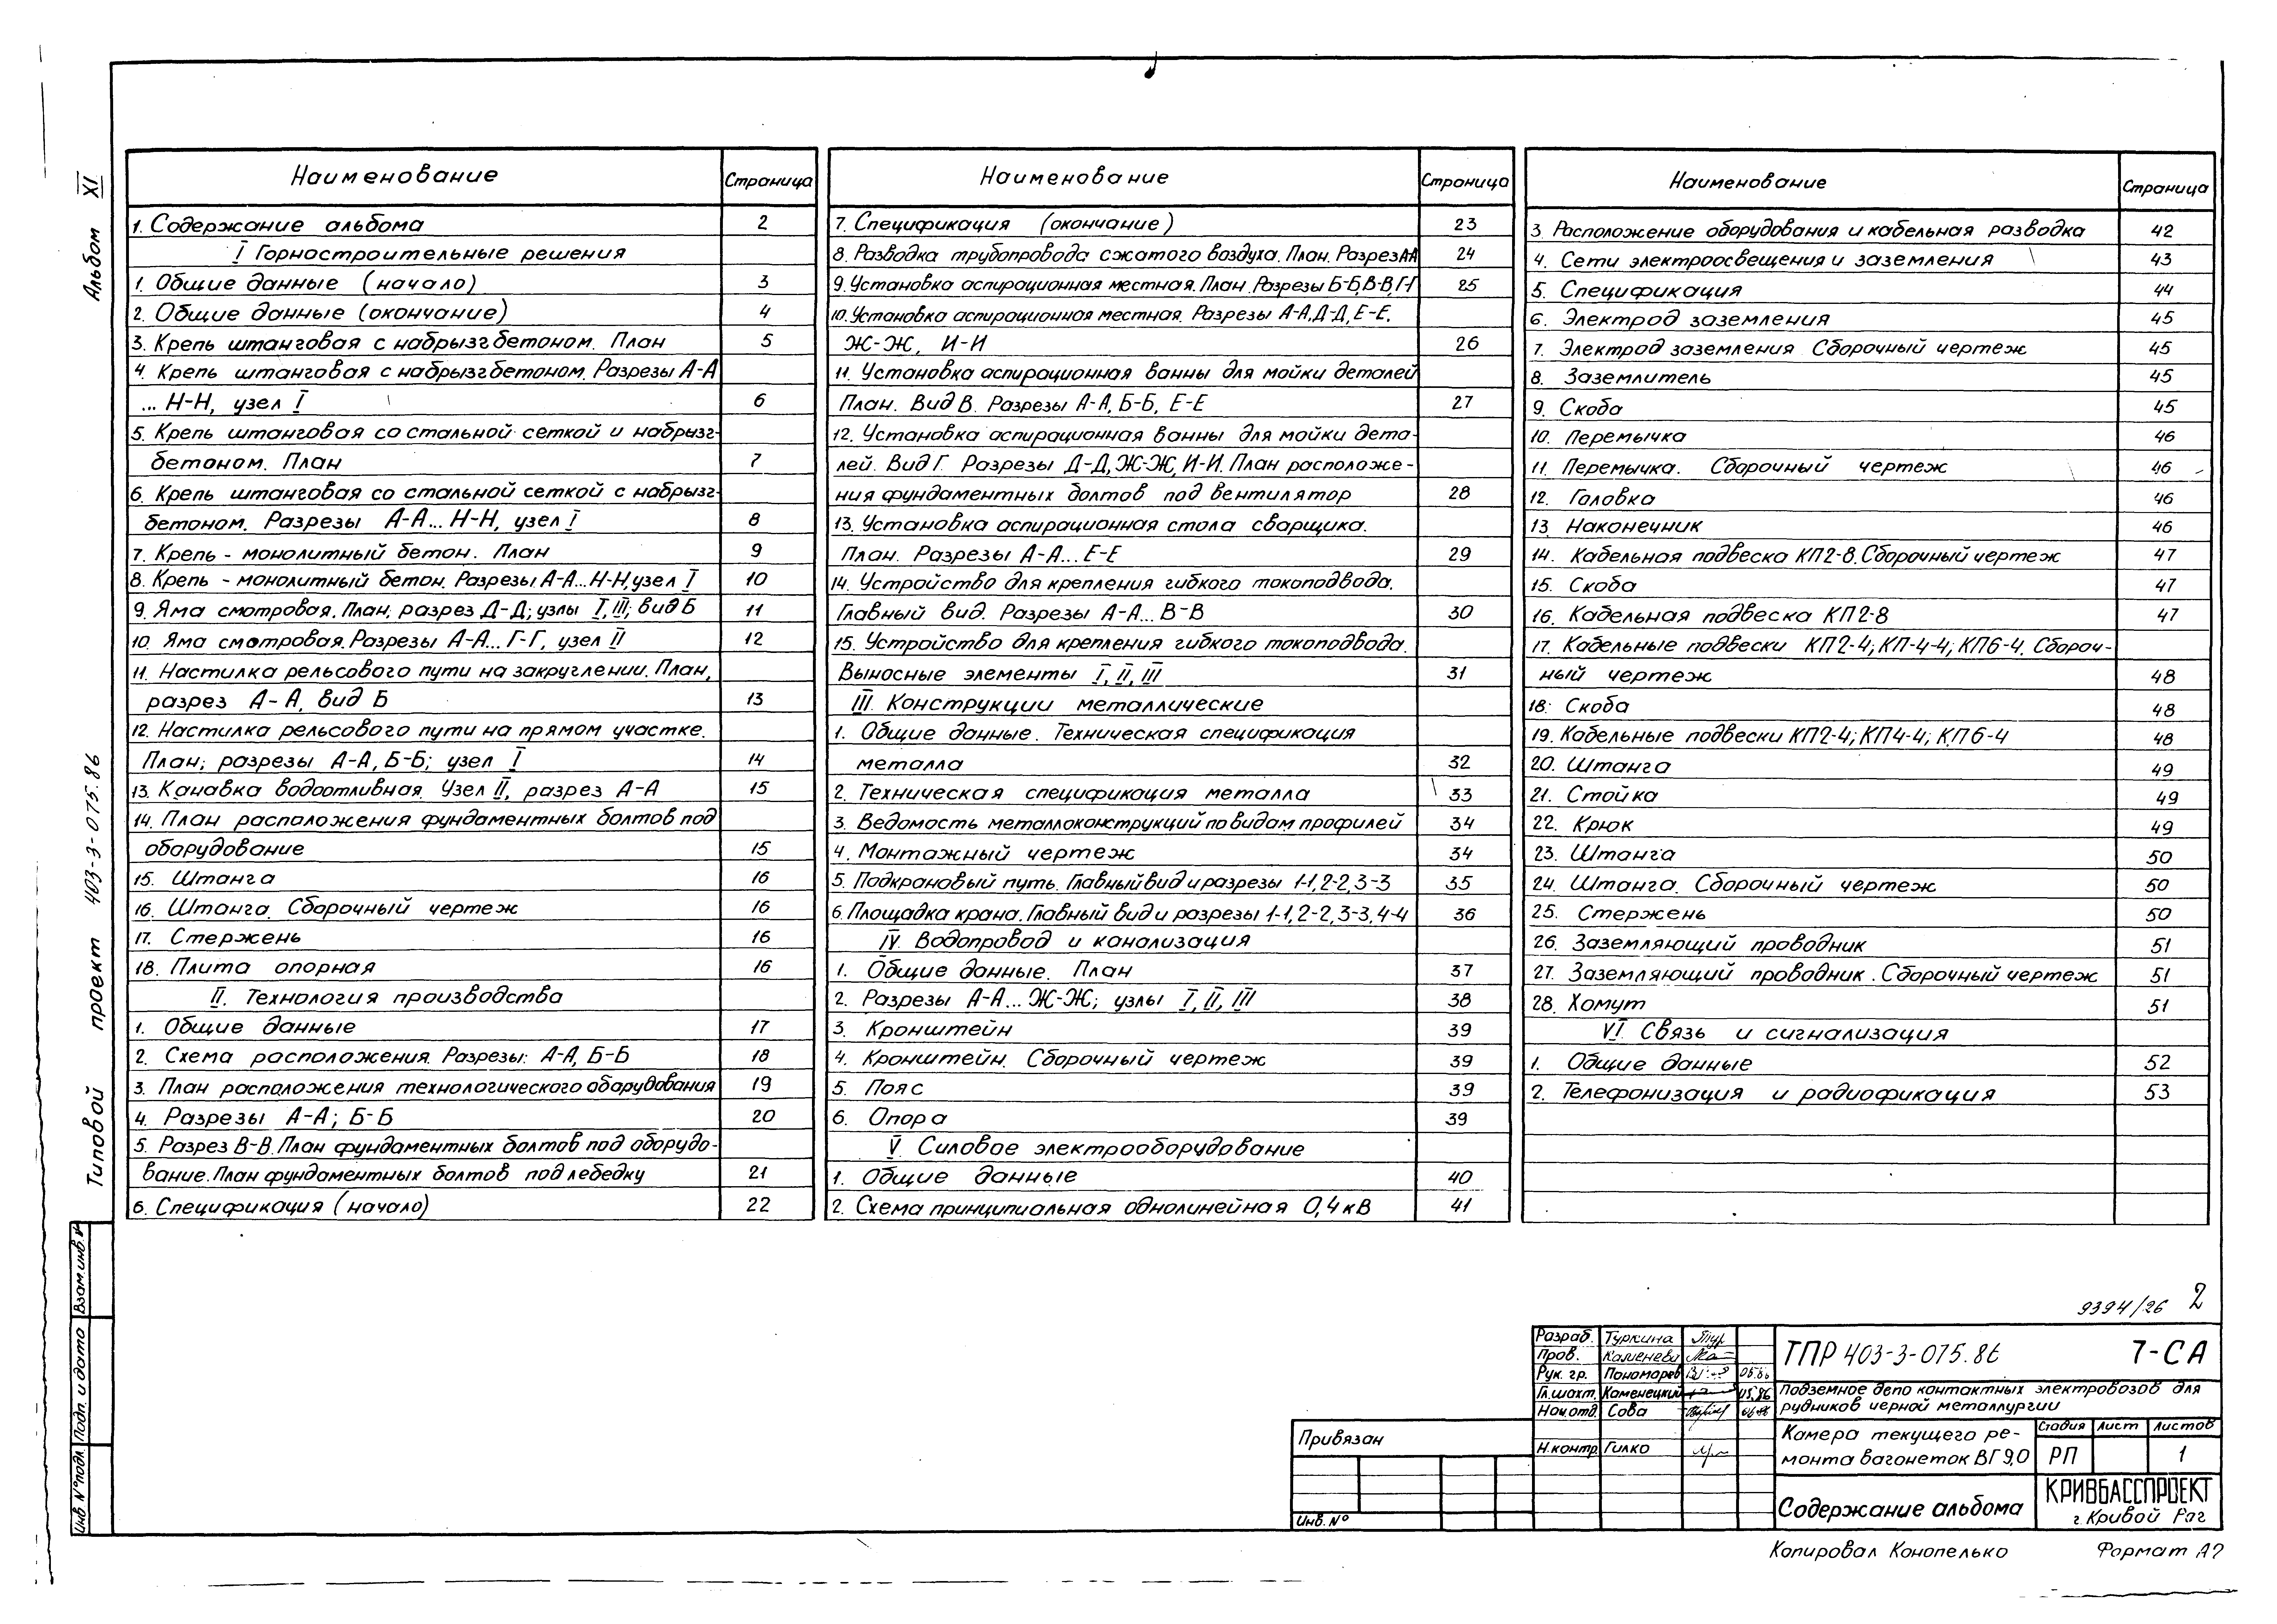 Альбом XI
Типовой проект 403-3-075.86
Наименование Страница
1. Содержание альбома 2
I Горностроительные решения
1. Общие данные (начало) 3
2. Общие данные (окончание) 4
3. Крепь штанговая с набрызгбетоном. План 5
4. Крепь штанговая с набрызгбетоном. Разрезы А-А
... Н-Н, узел I 6
5. Крепь штанговая со стальной сеткой и набрызг-
бетоном. План 7
6. Крепь штанговая со стальной сеткой с набрызг-
бетоном. Разрезы А-А... Н-Н, узел I 8
7. Крепь - монолитный бетон. План 9
8. Крепь - монолитный бетон. Разрезы А-А... Н-Н, узел I 10
9. Яма смотровая. План; разрез Д-Д; узлы I, III; вид Б 11
10. Яма смотровая. Разрезы А-А... Г-Г, узел II 12
11. Настилка рельсового пути на закруглении. План,
разрез А-А, вид Б 13
12. Настилка рельсового пути на прямом участке.
План; разрезы А-А, Б-Б; узел I 14
13. Канавка водоотливная Узел II, разрез А-А 15
14. План расположения фундаментных болтов под
оборудование 15
15. Штанга 16
16. Штанга. Сборочный чертеж 16
17. Стержень 16
18. Плита опорная 16
II. Технология производства
1. Общие данные 17
2. Схема расположения. Разрезы: А-А, Б-Б 18
3. План расположения технологического оборудования 19
4. Разрезы А-А; Б-Б 20
5. Разрез В-В. План фундаментных болтов под оборудо-
вание. План фундаментных болтов под лебедку 21
6. Спецификация (начало) 22
Наименование Страница
7. Спецификация (окончание) 23
8. Разводка трубопровода сжатого воздуха. План. Разрез А-А 24
9. Установка аспирационная местная. План. Разрезы Б-Б, В-В, Г-Г 25
10. Установка аспирационная местная. Разрезы А-А, Д-Д, Е-Е,
Ж-Ж, И-И 26
11. Установка аспирационная ванны для мойки деталей
План. Вид В. Разрезы А-А, Б-Б, Е-Е 27
12. Установка аспирационная ванны для мойки дета-
лей. Вид Г. Разрезы Д-Д, Ж-Ж, И-И. План расположе-
ния фундаментных болтов под вентилятор 28
13. Установка аспирационная стола сварщика.
План. Разрезы А-А... Е-Е 29
14. Устройство для крепления гибкого токоподвода.
Главный вид. Разрезы А-А... В-В 30
15. Устройство для крепления гибкого токоподвода.
Выносные элементы I, II, III 31
III. Конструкции металлические
1. Общие данные. Техническая спецификация
металла 32
2. Техническая спецификация металла 33
3. Ведомость металлоконструкций по видам профилей 34
4. Монтажный чертеж 34
5. Подкрановый путь. Главный вид и разрезы 1-1, 2-2, 3-3 35
6. Площадка крана. Главный вид и разрезы 1-1, 2-2, 3-3, 4-4 36
IV. Водопровод и канализация
1. Общие данные. План 37
2. Разрезы А-А... Ж-Ж; узлы I, II, III 38
3. Кронштейн 39
4. Кронштейн. Сборочный чертеж 39
5. Пояс 39
6. Опора 39
V. Силовое электрооборудование
1. Общие данные 40
2. Схема принципиальная однолинейная 0,4 кВ 41
Наименование Страница
3. Расположение оборудования и кабельная разводка 42
4. Сети электроосвещения и заземления 43
5. Спецификация 44
6. Электрод заземления 45
7. Электрод заземления Сборочный чертеж 45
8. Заземлитель 45
9. Скоба 45
10. Перемычка 46
11. Перемычка. Сборочный чертеж 46
12. Головка 46
13. Наконечник 46
14. Кабельная подвеска КП2-8. Сборочный чертеж 47
15. Скоба 47
16. Кабельная подвеска КП2-8 47
17. Кабельные подвески КП2-4; КП-4-4; КП6-4. Сбороч-
ный чертеж 48
18. Скоба 48
19. Кабельные подвески КП2-4; КП4-4; КП6-4 48
20. Штанга 49
21. Стойка 49
22. Крюк 49
23. Штанга 50
24. Штанга. Сборочный чертеж 50
25. Стержень 50
26. Заземляющий проводник 51
27. Заземляющий проводник. Сборочный чертеж 51
28. Хомут 51
VI Связь и сигнализация
1. Общие данные 52
2. Телефонизация и радиофикация 53
Взам.инв.№
Подп. и дата
Инв №подл.
9394/26 2
Разраб. Туркина
Пров. Каменева
Рук. гр. Пономарев 05.86
Гл.шахт. Каменецкий 05.86
Нач.отд. Сова 06.86
Н.контр. Гилко
Привязан
Инв. №
ТПР 403-3-075.86 7-СА
Подземное депо контактных электровозов для
рудников черной металлургии
Камера текущего ре-
монта вагонеток ВГ9,0
Стадия Лист Листов
РП 1
Содержание альбома
КРИВБАССПРОЕКТ
г. Кривой Рог
Копировал Конопелько Формат А2